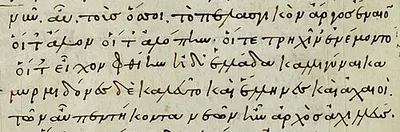 νῦν. αὖ. τοὺς ὅσοι. τὸ πελασγικὸν ἄργος ἔναιον
οἵ τ' ἄλον οἵ τ' ἀλόπην. οἵ τε τρηχῖν' ἐνέμοντο
οἵ τ' εἶχον φθίην ἠδ' ἑλλάδα καλλιγύναικα
μυρμιδόνες δὲ καλεῦντο καὶ ἕλληνες καὶ ἀχαιοί.
τῶν αὖ πεντήκοντα νεῶν ἦν ἀρχὸς ἀχιλλεύς.